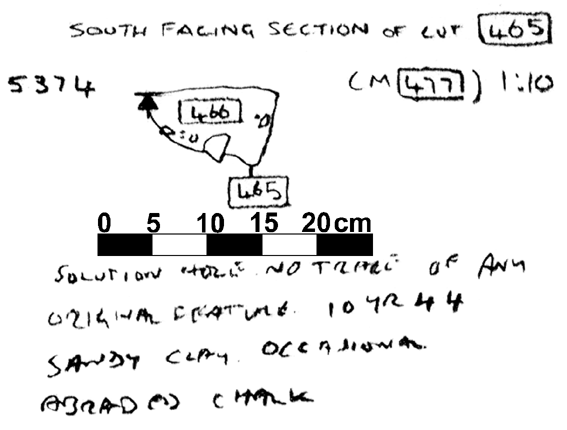 SOUTH FACING SECTION OF CUT 465
5374
(M 477) 1:10
466
465
0 5 10 15 20 cm
SOLUTION HOLE. NO TRACE OF ANY
ORIGINAL FEATURE. 10 YR 4 4
SANDY CLAY. OCCASIONAL
ABRADED CHALK